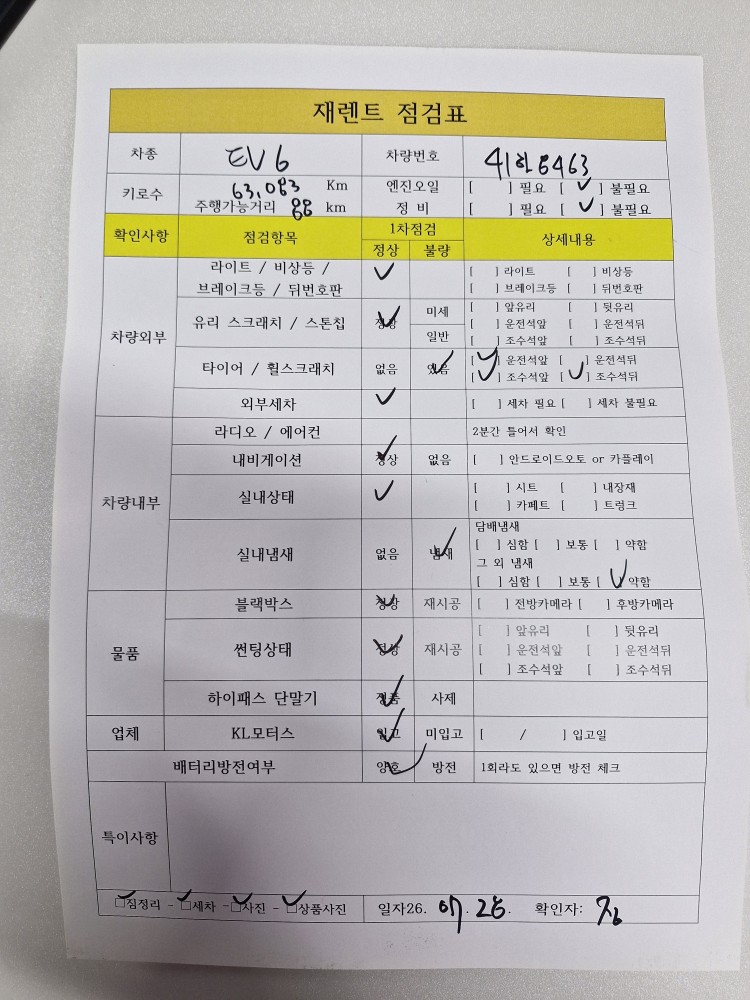 재렌트 점검표
차종 EV6 차량번호 41하6463
키로수 63,083 Km 엔진오일 [ ] 필요 [ ✓ ] 불필요
주행가능거리 88 km 정 비 [ ] 필요 [ ✓ ] 불필요
확인사항 점검항목 1차점검 상세내용
정상 불량
차량외부
라이트 / 비상등 / ✓ [ ] 라이트 [ ] 비상등
브레이크등 / 뒤번호판 [ ] 브레이크등 [ ] 뒤번호판
유리 스크래치 / 스톤칩 정상 ✓ 미세 [ ] 앞유리 [ ] 뒷유리
[ ] 운전석앞 [ ] 운전석뒤
일반 [ ] 조수석앞 [ ] 조수석뒤
타이어 / 휠스크래치 없음 있음 ✓ [ ✓ ] 운전석앞 [ ] 운전석뒤
[ ✓ ] 조수석앞 [ ✓ ] 조수석뒤
외부세차 ✓ [ ] 세차 필요 [ ] 세차 불필요
차량내부
라디오 / 에어컨 2분간 틀어서 확인
내비게이션 정상 ✓ 없음 [ ] 안드로이드오토 or 카플레이
실내상태 ✓ [ ] 시트 [ ] 내장재
[ ] 카페트 [ ] 트렁크
실내냄새 없음 냄새 ✓ 담배냄새
[ ] 심함 [ ] 보통 [ ] 약함
그 외 냄새
[ ] 심함 [ ] 보통 [ ✓ ] 약함
물품
블랙박스 정상 ✓ 재시공 [ ] 전방카메라 [ ] 후방카메라
썬팅상태 정상 ✓ 재시공 [ ] 앞유리 [ ] 뒷유리
[ ] 운전석앞 [ ] 운전석뒤
[ ] 조수석앞 [ ] 조수석뒤
하이패스 단말기 정품 ✓ 사제
업체 KL모터스 입고 ✓ 미입고 [ / ] 입고일
배터리방전여부 양호 ✓ 방전 1회라도 있으면 방전 체크
특이사항
☑짐정리 - ☑세차 - ☑사진 - ☑상품사진 일자26. 07. 26. 확인자: